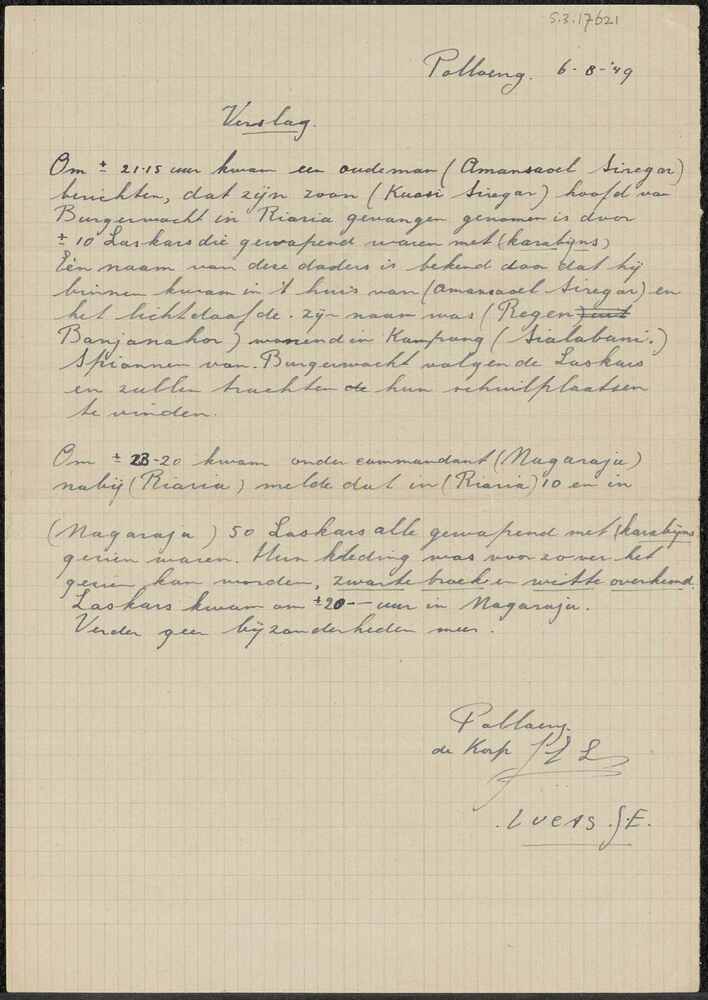 S.3.17621
Polloeng. 6-8-'49
Verslag.
Om ± 21.15 uur kwam een oudeman (Amansaoel Siregar)
berichten, dat zijn zoon (Kuasi Siregar) hoofd van
Burgerwacht in Riaria gevangen genomen is door
± 10 Laskars die gewapend waren met (karabijns)
Eén naam van deze daders is bekend door dat hij
binnen kwam in 't huis van (Amansaoel Siregar) en
het licht doofde. zijn naam was (Regen
Banjanahor) wonend in Kampung (Sialabani.)
Spionnen van. Burgerwacht volgen de Laskars
en zullen trachten de hun schuilplaatsen
te vinden.
Om ± 23-20 kwam onder commandant (Nagaraja)
nabij (Riaria) melde dat in (Riaria) 10 en in
(Nagaraja) 50 Laskars alle gewapend met (karabijns
gezien waren. Hun kleding was voor zover het
gezien kan worden, zwarte broek en witte overhemd.
Laskars kwam om ± 20-- uur in Nagaraja.
Verder geen bijzonderheden meer.
Polloeng.
de Korp
LUCAS J.E.